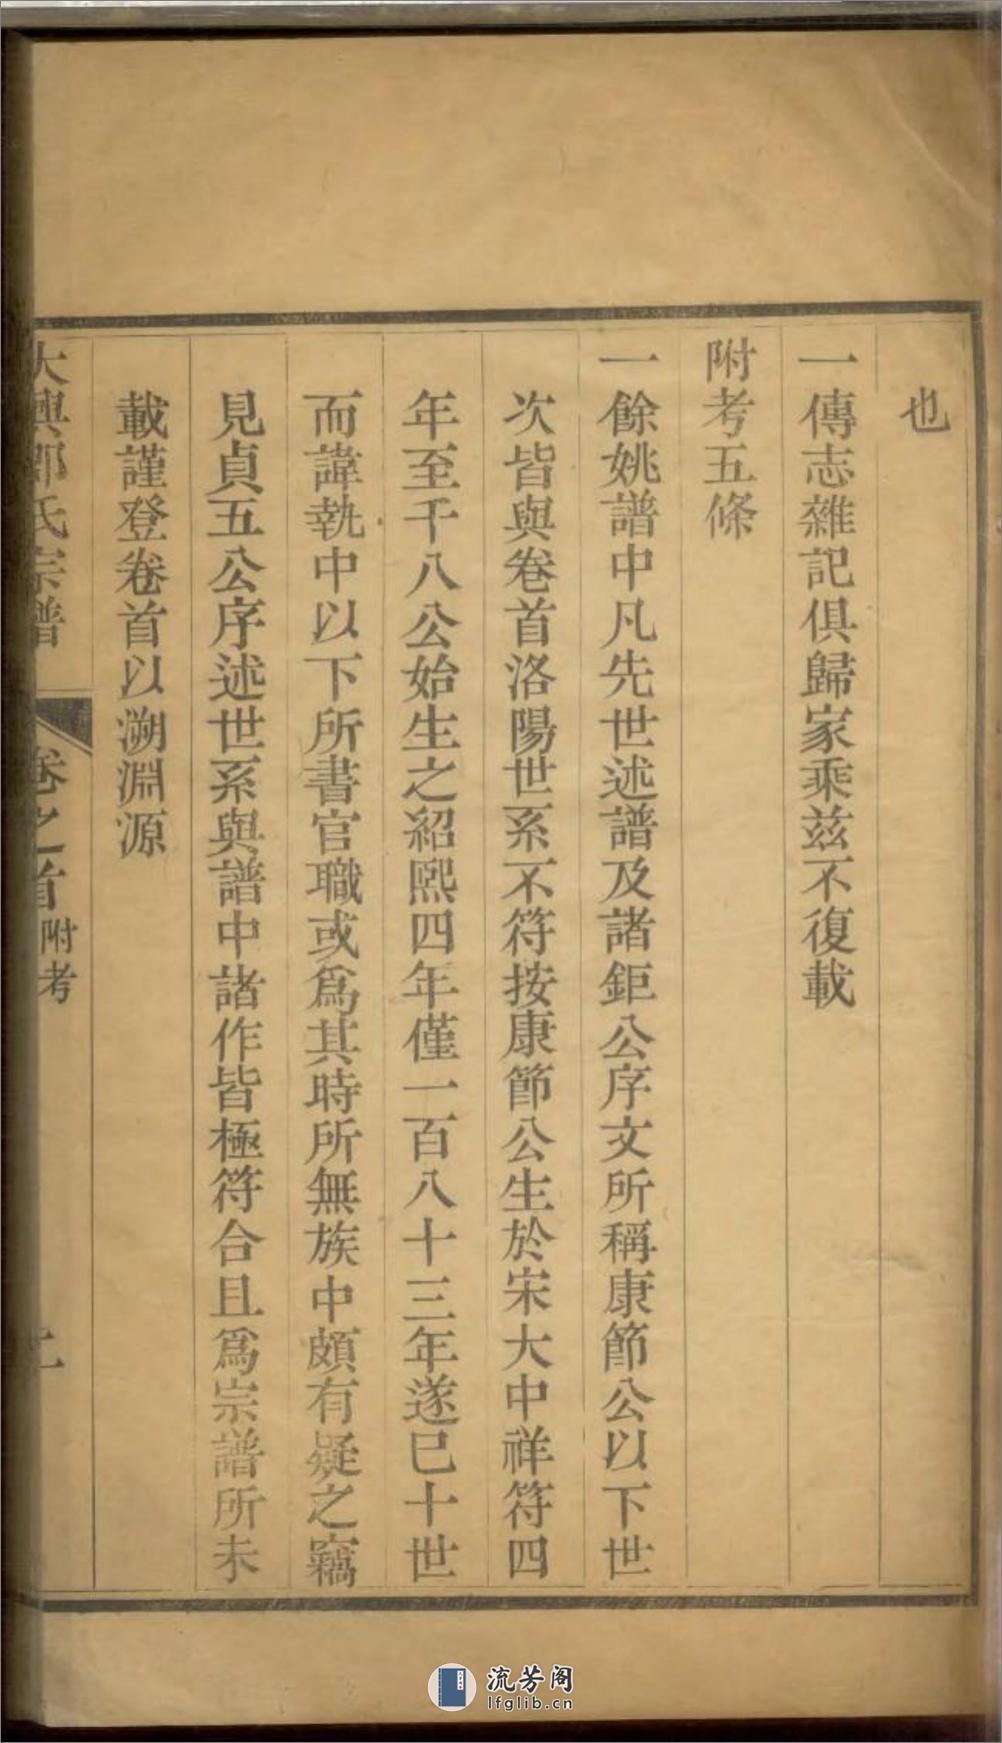 也
一傳志雜記俱歸家乘茲不復載
附考五條
一餘姚譜中凡先世述譜及諸鉅公序文所稱康節公以下世
次皆與卷首洛陽世系不符按康節公生於宋大中祥符四
年至千八公始生之紹熙四年僅一百八十三年遂已十世
而諱執中以下所書官職或爲其時所無族中頗有疑之竊
見貞五公序述世系與譜中諸作皆極符合且爲宗譜所未
載謹登卷首以溯淵源
大興邵氏宗譜 卷之首 附考
流芳阁
lfglib.cn